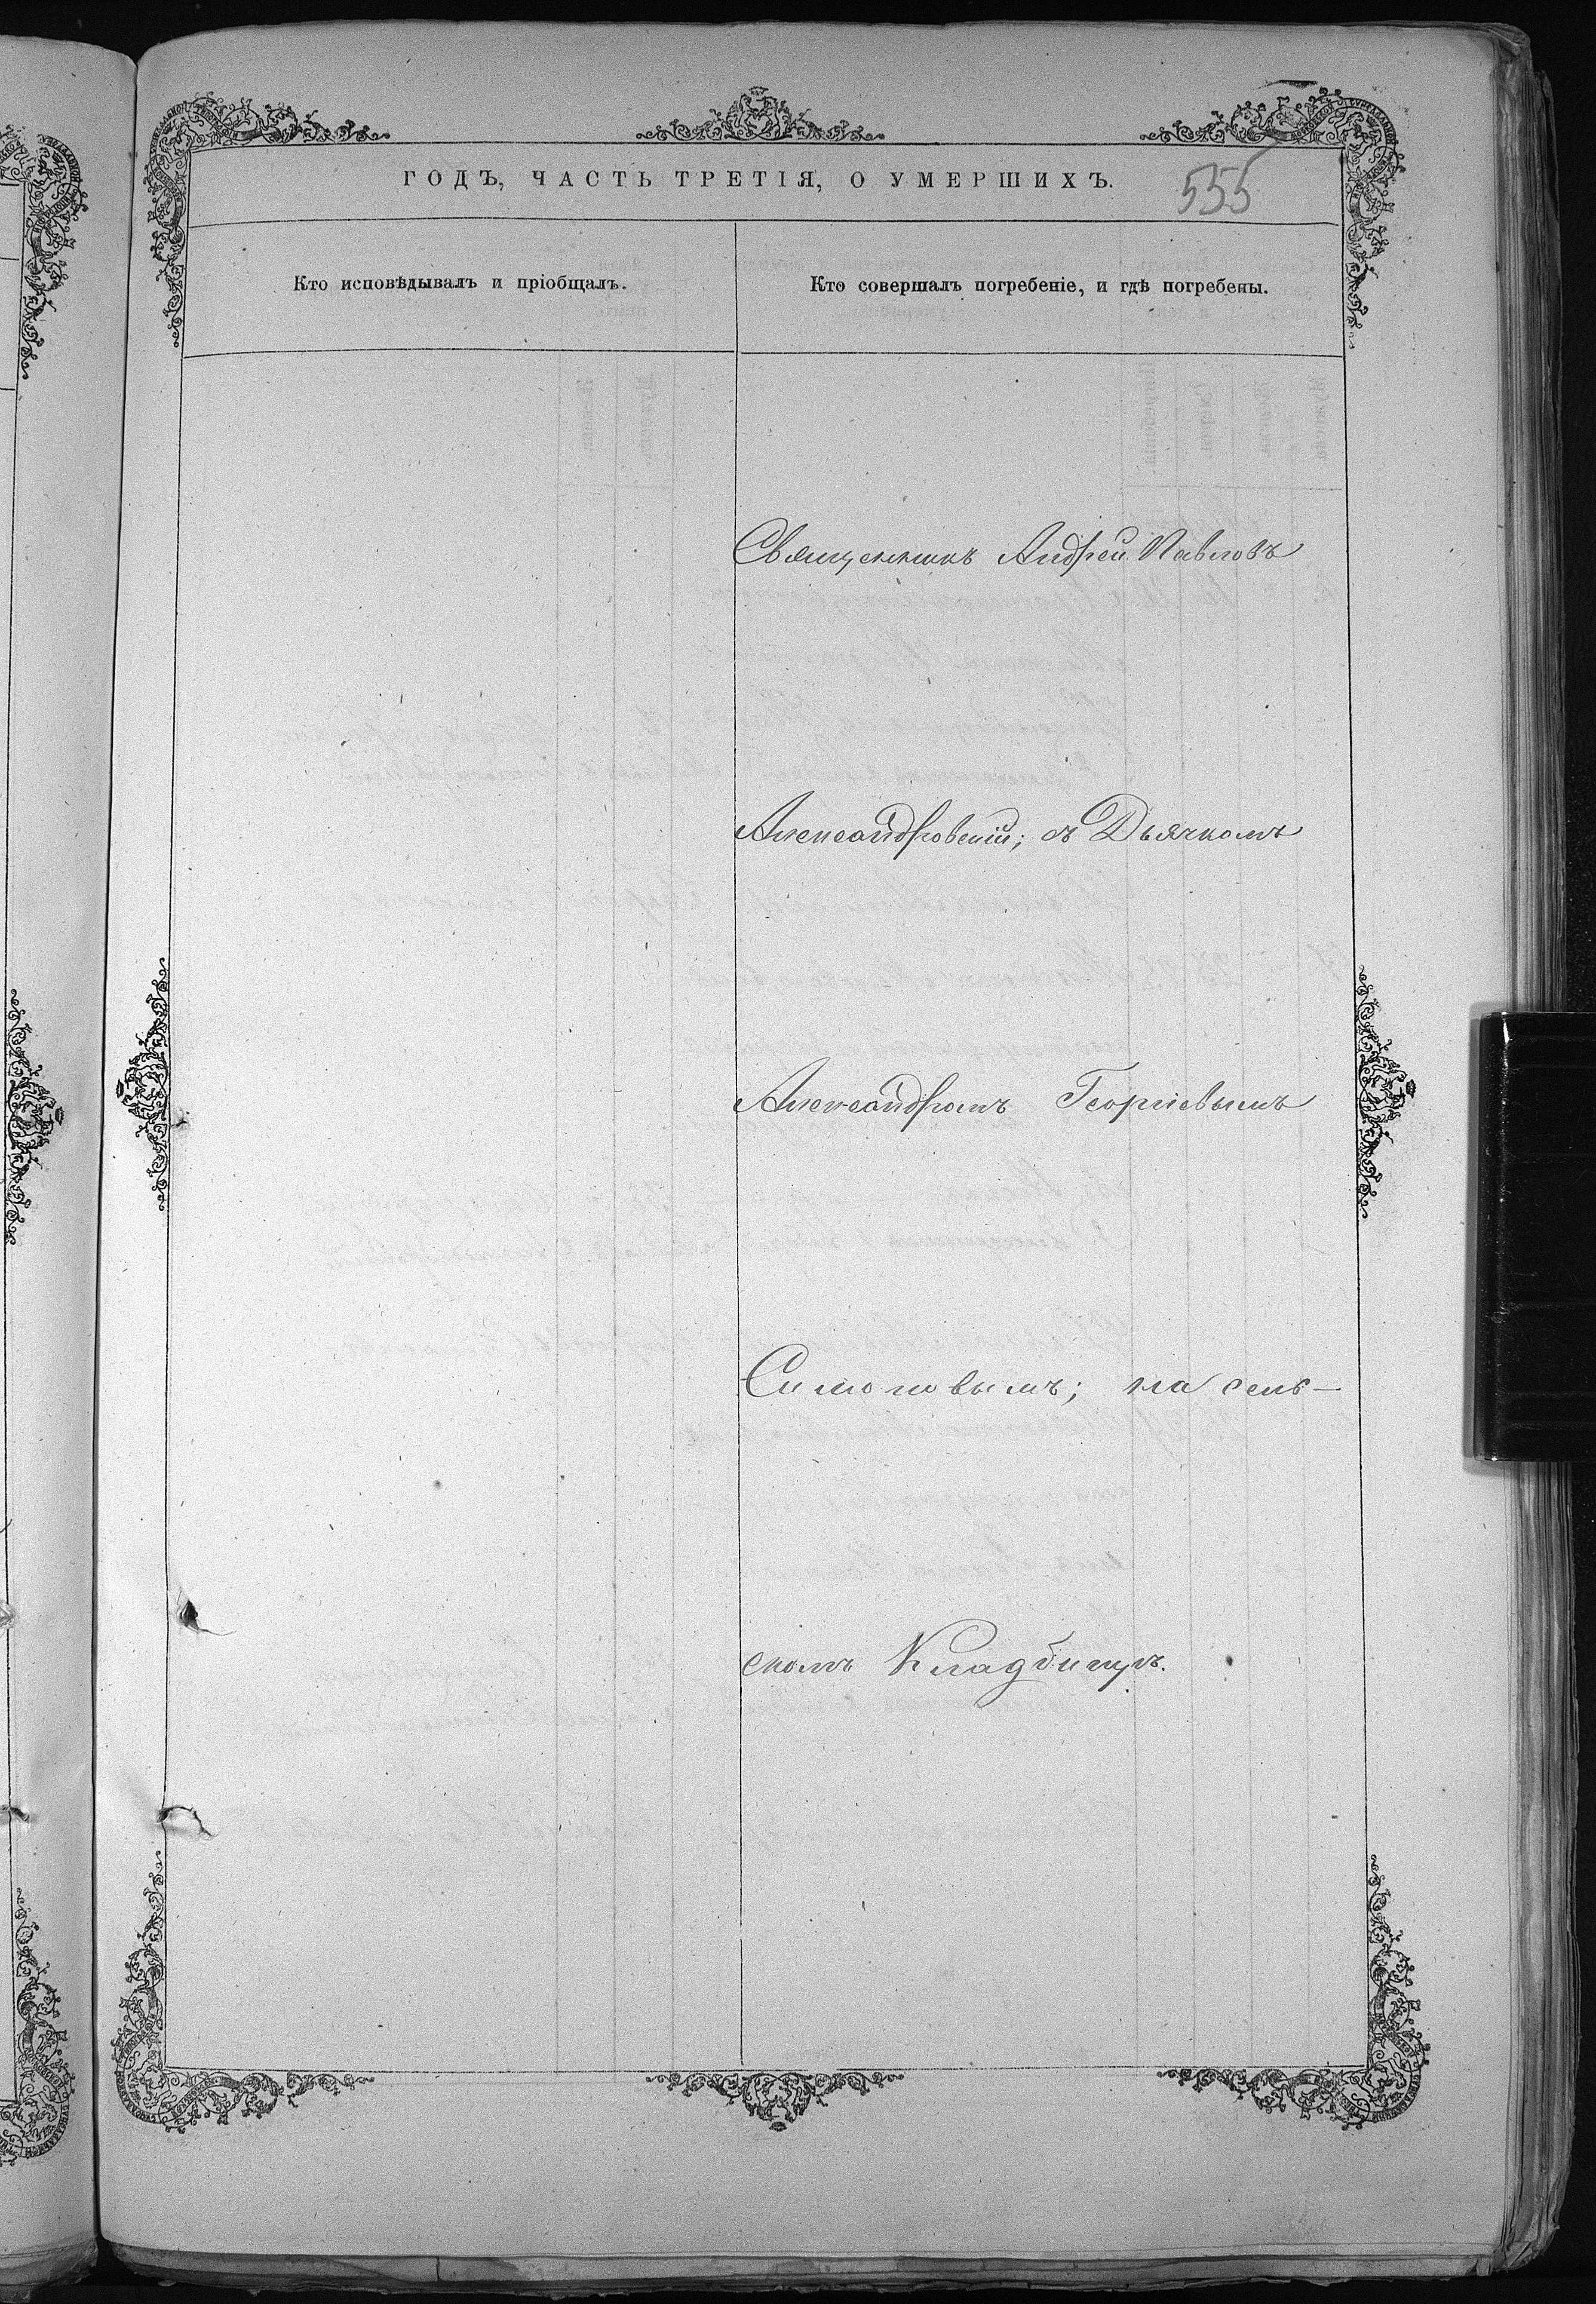 ГОДЪ, ЧАСТЬ ТРЕТІЯ, О УМЕРШИХЪ.
555
Кто исповѣдывалъ и пріобщалъ.
Кто совершалъ погребеніе, и гдѣ погребены.
Священникъ Андрей Павловъ
Александровскій; съ Дьячкомъ
Александромъ Георгіевымъ
Симоновымъ; на сель-
скомъ Кладбищѣ.